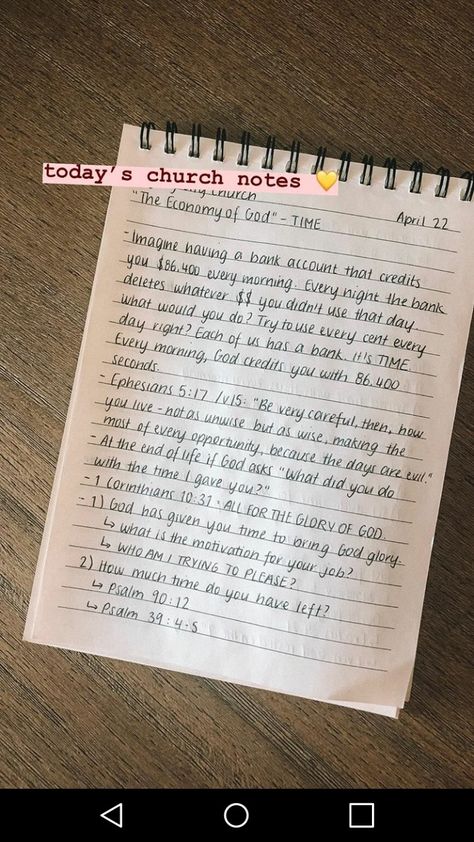 today's church notes 💛
church
"The Economy of God" - TIME
April 22
- Imagine having a bank account that credits
you $86,400 every morning. Every night the bank
deletes whatever $$ you didn't use that day
what would you do? Try to use every cent every
day right? Each of us has a bank. it's TIME.
Every morning, God credits you with 86,400
seconds.
- Ephesians 5:17 /v15: "Be very careful, then, how
you live - not as unwise but as wise, making the
most of every opportunity, because the days are evil."
- At the end of life if God asks "What did you do
with the time I gave you?"
- 1 Corinthians 10:31 - ALL FOR THE GLORY OF GOD.
- 1) God has given you time to bring God glory.
↳ what is the motivation for your job?
↳ WHO AM I TRYING TO PLEASE?
2) How much time do you have left?
↳ Psalm 90:12
↳ Psalm 39:4-5